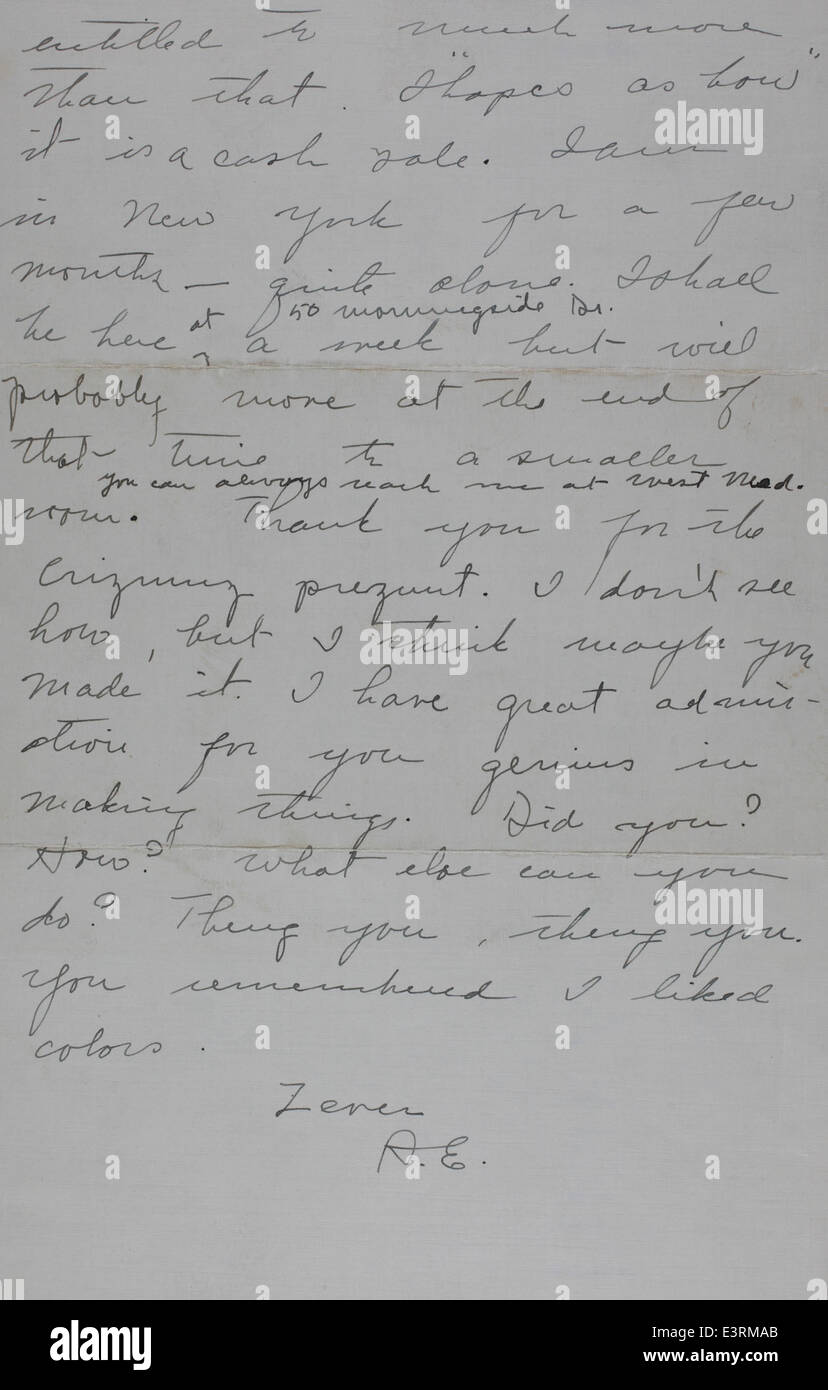 entitled to much more
than that. I "hopes as how"
it is a cash sale. I am
in New York for a few
months – quite alone. I shall
50 Morningside Dr.
be here at a week but will
probably move at the end of
that time to a smaller
you can always reach me at West Med.
room. Thank you for the
Crizmuz prezunt. I don't see
how, but I think maybe you
made it. I have great admir-
ation for you genius in
making things. Did you?
How? What else can you
do? Theng you, theng you.
You remembered I liked
colors.
Zever
A.E.
alamy
Image ID: E3RMAB
www.alamy.com